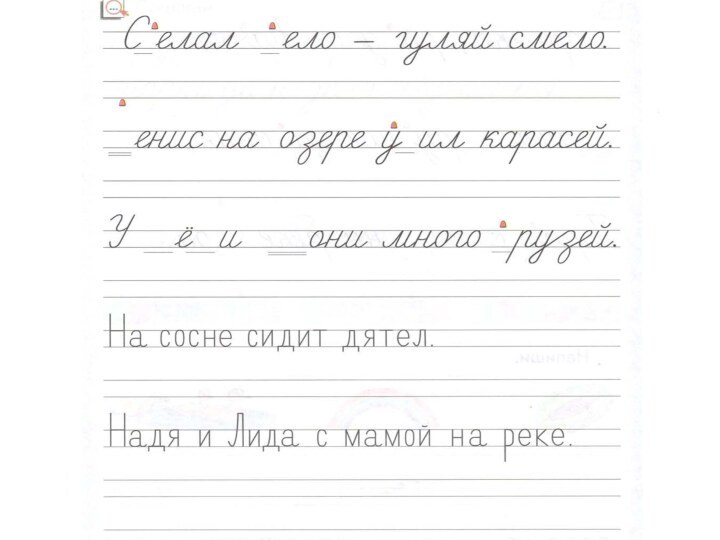 С_елал _ело – гуляй смело.
_енис на озере у_ил карасей.
У _ё_и _они много _рузей.
На сосне сидит дятел.
Надя и Лида с мамой на реке.